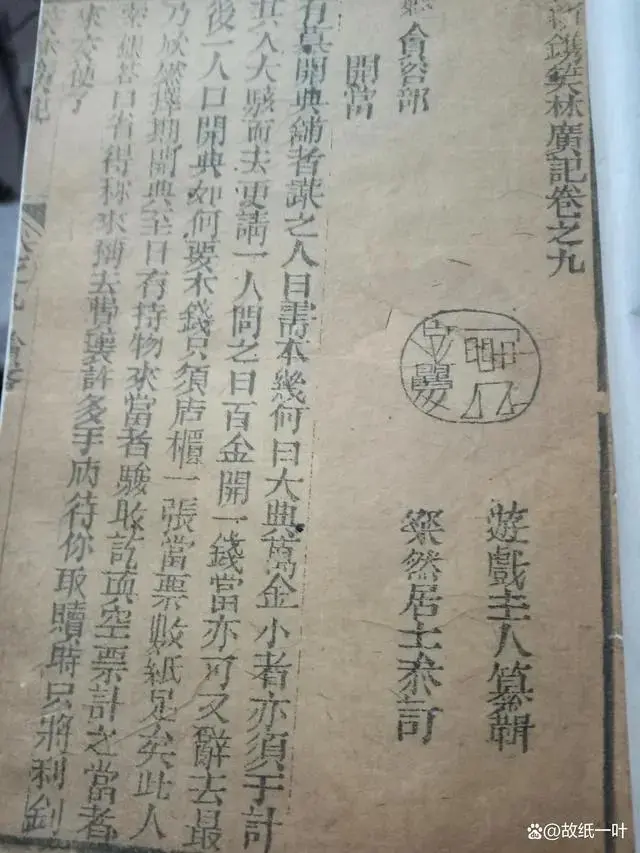 新鐫笑林廣記卷之九
遊戲主人纂輯
粲然居士叅訂
貪吝部
開當
有慕開典鋪者謀之人曰需本幾何曰大典萬金小者亦須于計
其人大駭而去更請一人問之曰百金開一錢當亦可又辭去最
後一人口開典如何要本錢只須店櫃一張當票數紙足矣此人
乃欣然擇期開典至日有持物來當者驗收訖填空票計之當者
索銀答曰省得稱來稱去費壞許多手脚待你取贖時只將利釗
來交便了
笑林廣記
卷之九 貪吝
@故纸一叶